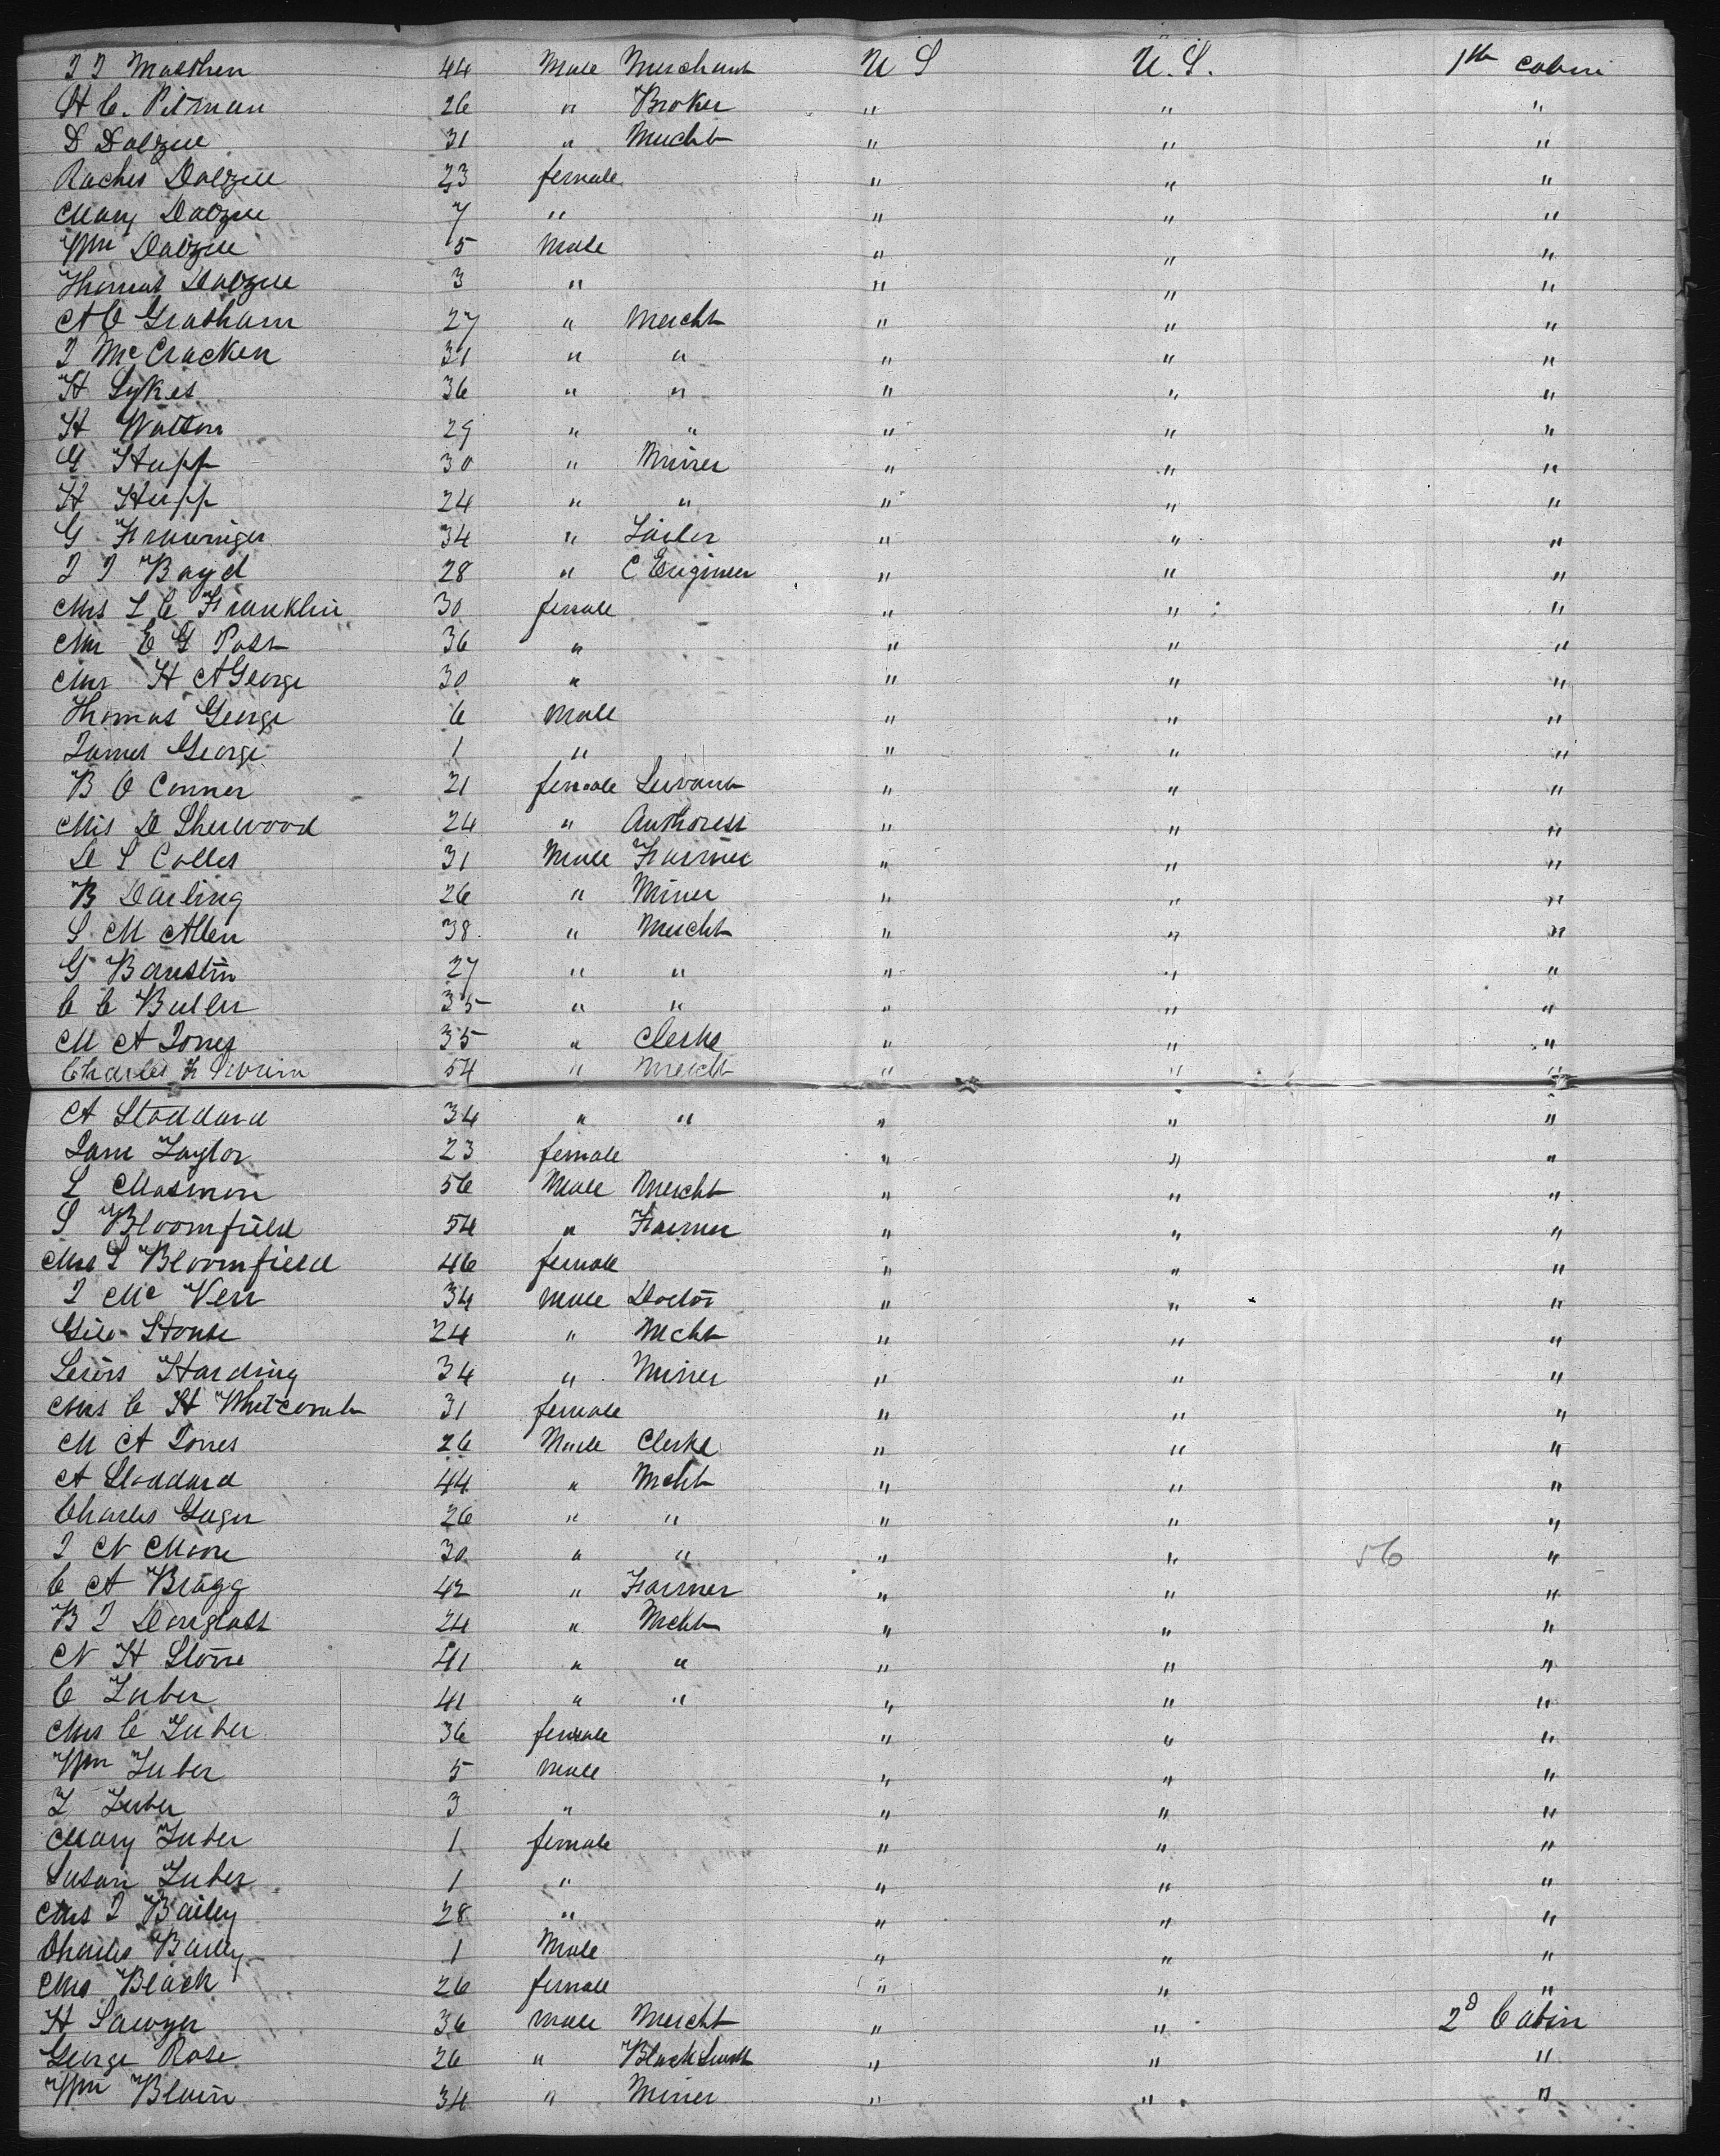 J J Masthen 44 Male Merchant U S U. S. 1st Cabin
H C. Pitman 26 " Broker " " "
D Dalzell 31 " Mercht " " "
Rachel Dalzell 23 female " " "
Mary Dalzell 7 " " " "
Wm Dalzell 5 Male " " "
Thomas Dalzell 3 " " " "
A C Grasham 27 " Mercht " " "
J McCracken 31 " " " " "
H Sykes 36 " " " " "
H Watson 29 " " " " "
G Hupp 30 " Miner " " "
H Hupp 24 " " " " "
G 34 " " " "
J J Boyd 28 " C Engineer " " "
Mrs L C Franklin 30 female " " "
Mrs E G Post 36 " " " "
Mrs H A George 30 " " " "
Thomas George 6 Male " " "
James George 1 " " " "
B O Conner 21 female Servant " " "
Mis D Sherwood 24 " Authoress " " "
D S Colles 31 Male Farmer " " "
B Darling 26 " Miner " " "
S M Allen 38 " Mercht " " "
G Banstin 27 " " " " "
C C Butler 35 " " " " "
M A Jones 35 " Clerke " " "
Charles F 54 " Mercht " " "
A Stoddard 34 " " " " "
Jane Taylor 23 female " " "
L Masmon 56 Male Mercht " " "
S Bloomfield 54 " Farmer " " "
Mrs S Bloomfield 46 female " " "
J Mc Verr 34 Male Doctor " " "
Geo Stouse 24 " Mcht " " "
Lewis Harding 34 " Miner " " "
Mrs C H Whitcomb 31 female " " "
M A Jones 26 Male Clerke " " "
A Stoddard 44 " Mcht " " "
Charles Guger 26 " " " " "
J N Moore 30 " " " " 56 "
C A Bragg 42 " Farmer " " "
B J Douglass 24 " Mcht " " "
N H Stone 41 " " " " "
C Zuber 41 " " " " "
Mrs C Zuber 36 female " " "
Wm Zuber 5 Male " " "
Z Zuber 3 " " " "
Mary Zuber 1 female " " "
Susan Zuber 1 " " " "
Mrs J Bailey 28 " " " "
Charles Bailey 1 Male " " "
Mrs Black 26 female " " "
H Sawyer 36 Male Mercht " " 2d Cabin
George Rose 26 " Black Smith " " "
Wm Blain 34 " Miner " " "